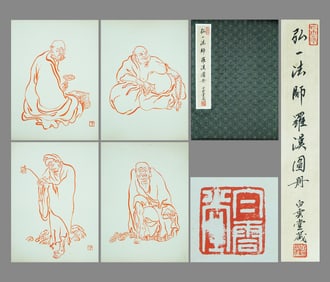 弘一法師羅漢圖册
弘一法師羅漢圖册
白雲堂藏
白雲堂